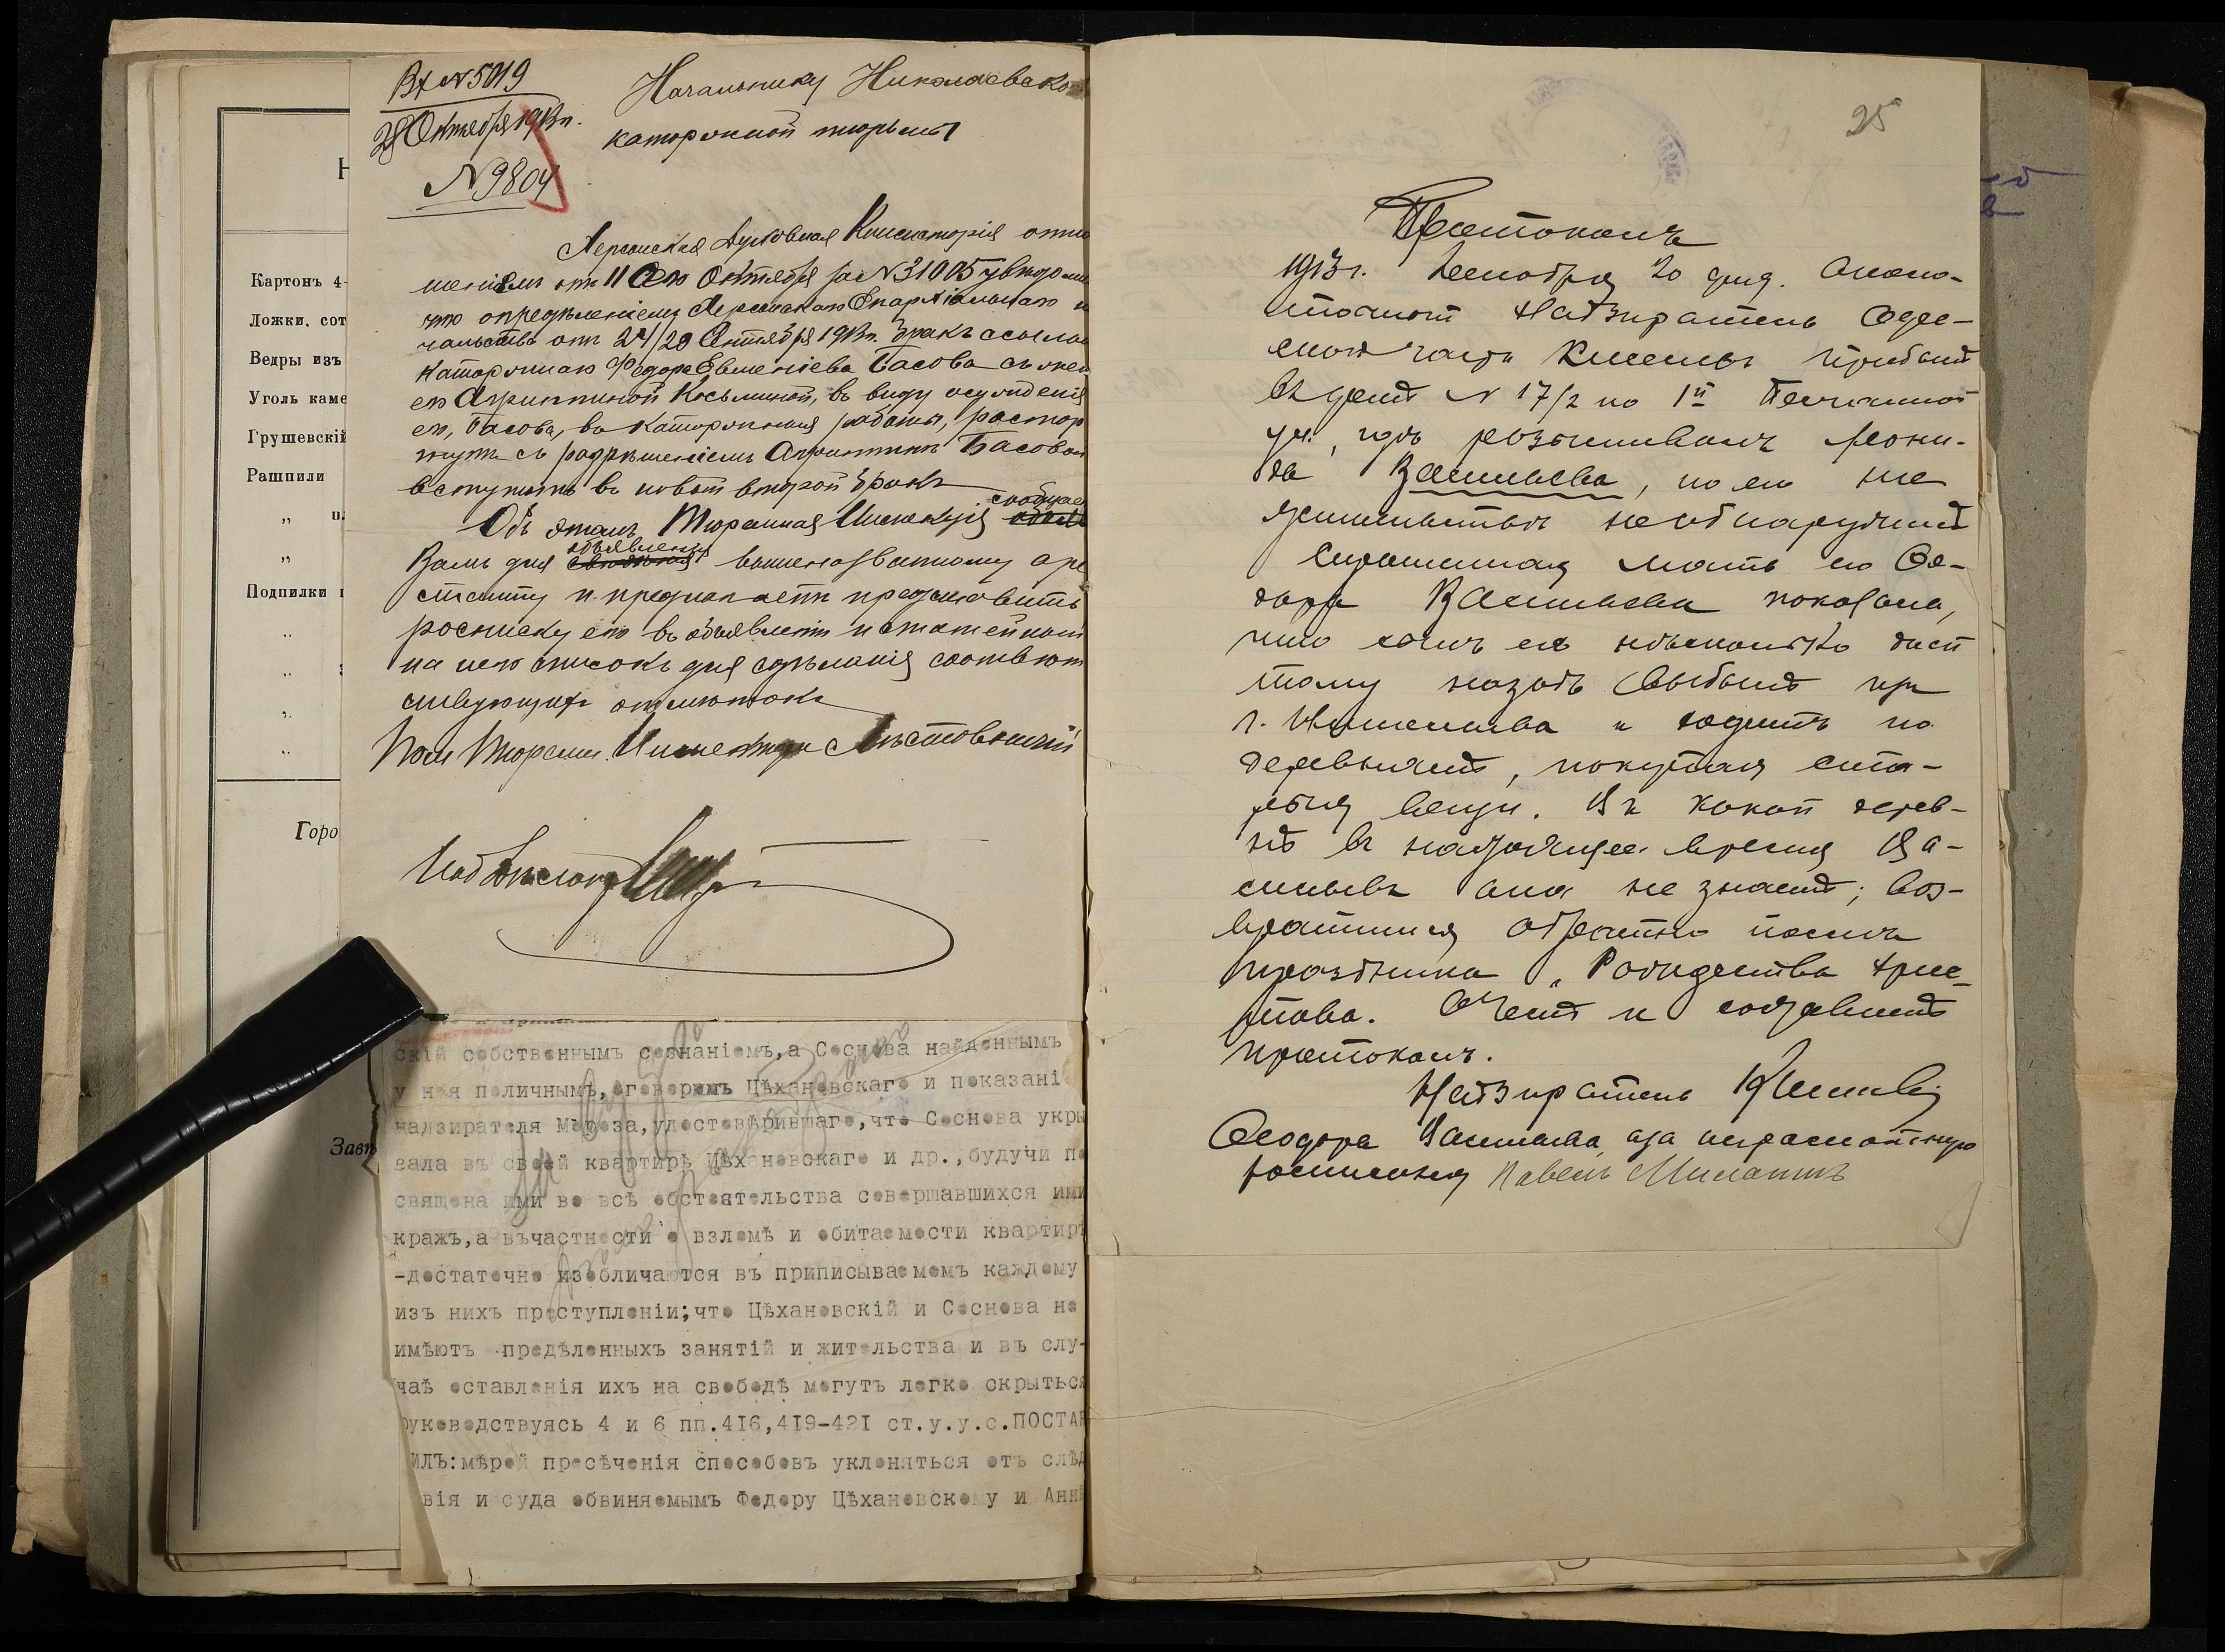 Н
Картонъ 4-
Ложки, сот
Ведры изъ
Уголь каме
Грушевскій
Рашпили
„ п.
„
Подпилки
„
„
„
„
Горо
Завѣ
Вх № 5019
28 Октября 1913 г.
№ 9804
Начальнику Николаевско
каторжной тюрьмы
Херсонская Духовная Консисторія отно
шеніемъ отъ 11 сего Октября за № 31005 увѣдоми
что опредѣленіемъ Херсонскаго Епархіальнаго н
чальства отъ 24/20 Сентября 1913 г. бракъ ссыльно
каторжнаго Федора Евменіева Басова съ жен
ею Агриппиной Косьминой, въ виду осужденія
его, Басова, въ каторжныя работы, расторг
нутъ съ разрѣшеніемъ Агриппинѣ Басовой
вступить въ новый второй бракъ
Объ этомъ Тюремная Инспекція сообщае
Вамъ для объявленія вышеназванному аре
станту и предлагаетъ представить
росписку его въ объявленіи и статейный
на него списокъ для сдѣланія соотвѣт
ствующихъ отмѣтокъ
Пом Тюремн. Инспектора
скій собственнымъ сознаніемъ,а Соснова найденнымъ
у нея поличнымъ,оговоромъ Цѣхановскаго и показані
надзирателя Мороза,удостовѣрившаго,что Соснова укры
вала въ своей квартирѣ Цѣхановскаго и др.,будучи по
священа ими во всѣ обстоятельства совершавшихся ими
кражъ,а въчастности о взломѣ и обитаемости квартиръ
-достаточно изобличаются въ приписываемомъ каждому
изъ нихъ преступленіи;что Цѣхановскій и Соснова не
имѣютъ опредѣленныхъ занятій и жительства и въ слу-
чаѣ оставленія ихъ на свободѣ могутъ легко скрыться
руководствуясь 4 и 6 пп.416,419-421 ст.у.у.с.ПОСТАН
ИЛЪ:мѣрой пресѣченія способовъ уклоняться отъ слѣд
вія и суда обвиняемымъ Федору Цѣхановскому и Анн
25
Протоколъ
1913 г. Декабря 20 дня. Около-
точный Надзиратель Одес-
ской части прибылъ
въ домъ № 17/2 по 1й Песчаной
ул., гдѣ розыскивалъ Леони-
да Васильева, но его по
жительству не обнаружилъ
Спрошенная мать его Ѳе-
дора Васильева показала,
что сынъ ея нѣсколько дней
тому назадъ выбылъ изъ
г. Николаева и ходитъ по
деревнямъ, покупая ста-
рыя вещи. Въ какой дерев-
нѣ въ настоящее время Ва-
сильевъ она не знаетъ; воз-
вратится обратно послѣ
праздника „Рождества Хри-
стова. О чемъ и составилъ
протоколъ.
Надзиратель
Ѳеодора Васильева, а за неграмотную
росписался Павелъ